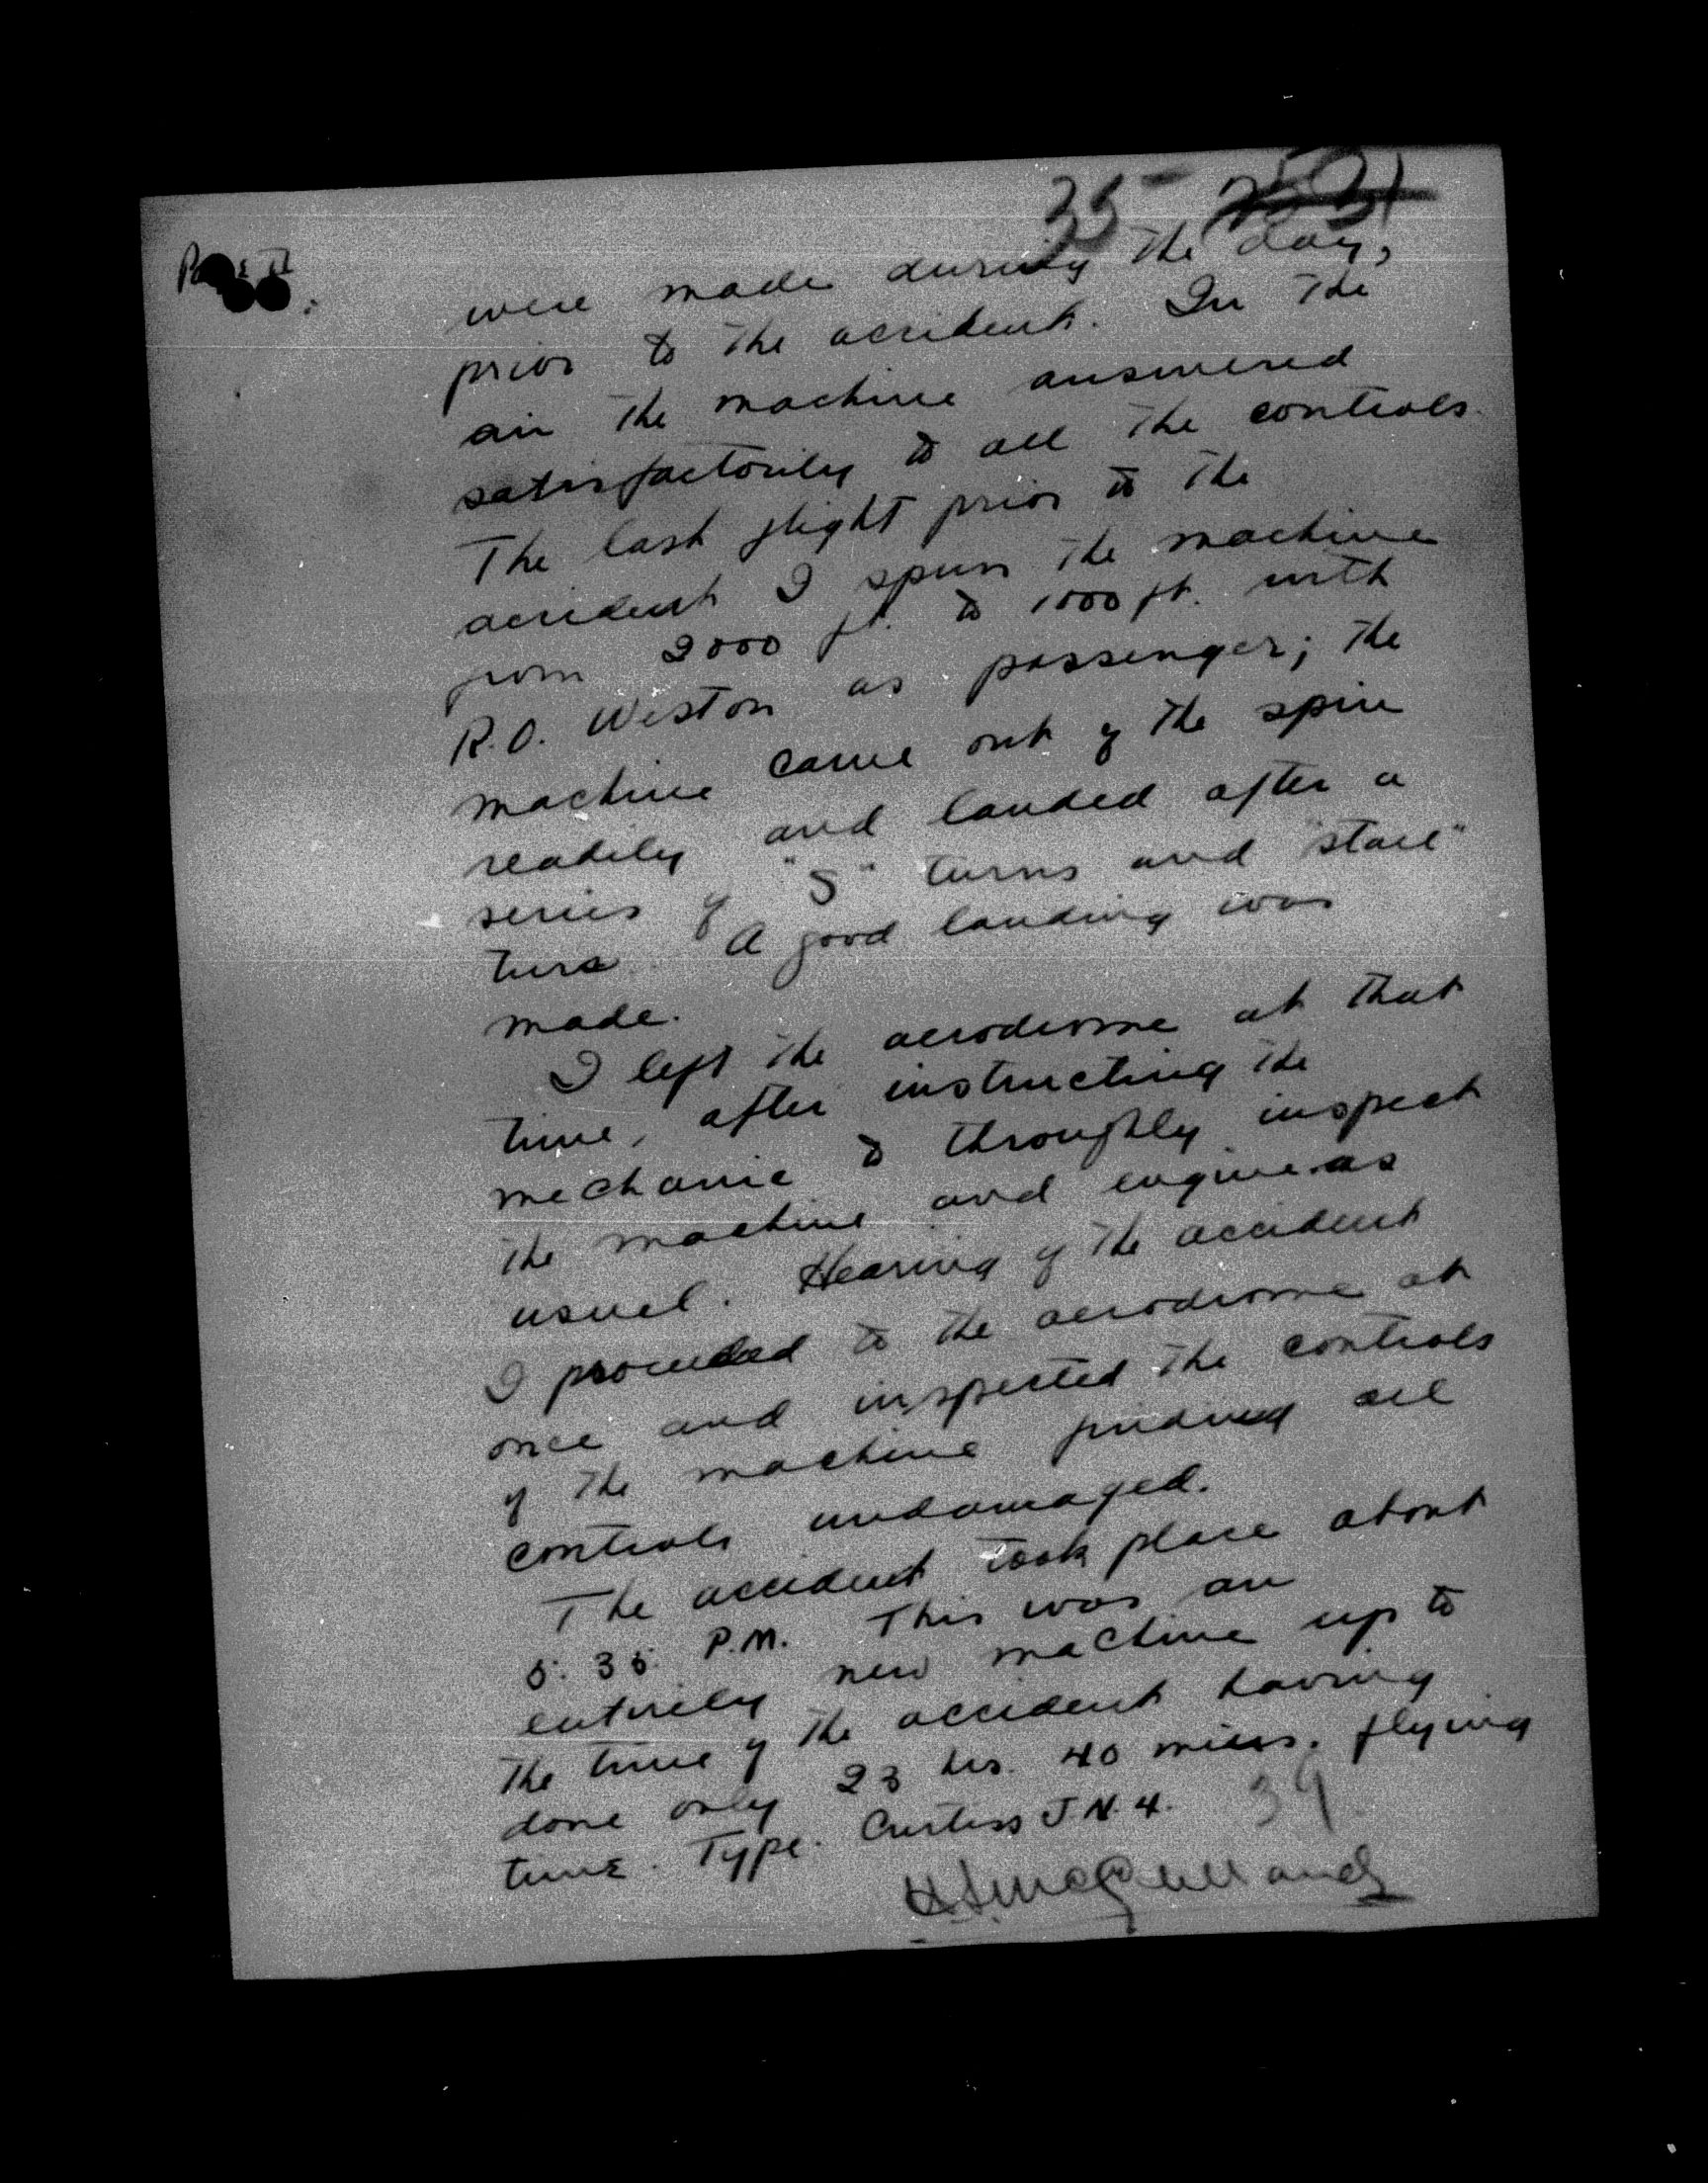 35
Page II
were made during the day,
prior to the accident. In the
air the machine answered
satisfactorily to all the controls.
The last flight prior to the
accident I spun the machine
from 2000 ft. to 1000 ft. with
R.O. Weston as passenger; the
machine came out of the spin
readily and landed after a
series of "S" turns and "stall"
turs. A good landing was
made.
I left the aerodrome at that
time, after instructing the
mechanic to throughly inspect
the machine and engine as
usual. Hearing of the accident
I proceeded to the aerodrome at
once and inspected the controls
of the machine finding all
controls undamaged.
The accident took place about
5:35 P.M. This was an
entirely new machine up to
the time of the accident having
done only 23 hrs. 40 mins. flying
time. Type. Curtiss J.N.4.
39